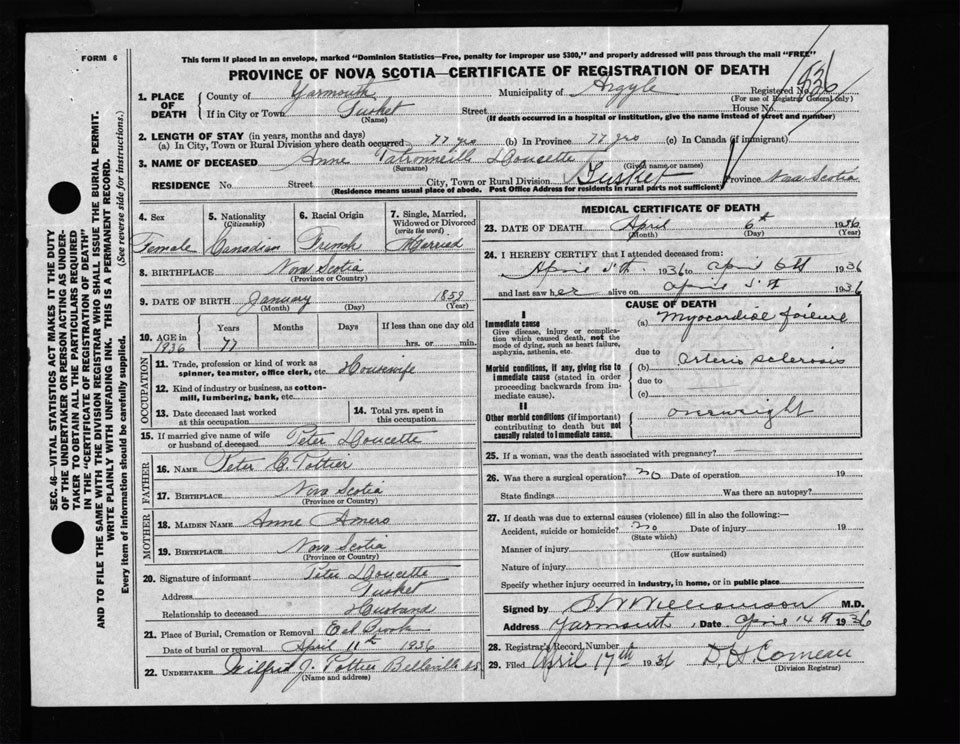 FORM 6
This form if placed in an envelope, marked "Dominion Statistics—Free, penalty for improper use $300," and properly addressed will pass through the mail "FREE"
PROVINCE OF NOVA SCOTIA—CERTIFICATE OF REGISTRATION OF DEATH
1. PLACE OF DEATH County of Yarmouth Municipality of Argyle Registered No. 636
(For use of Registrar General only)
If in City or Town Tusket Street House No.
(Name) (If death occurred in a hospital or institution, give the name instead of street and number)
2. LENGTH OF STAY (in years, months and days)
(a) In City, Town or Rural Division where death occurred 77 yrs (b) In Province 77 yrs (c) In Canada (if immigrant)
3. NAME OF DECEASED Anne Doucette
(Surname) (Given name or names)
RESIDENCE No. Street City, Town or Rural Division Tusket Province Nova Scotia
(Residence means usual place of abode. Post Office Address for residents in rural parts not sufficient)
4. Sex 5. Nationality (Citizenship) 6. Racial Origin 7. Single, Married, Widowed or Divorced (write the word)
Female Canadian French Married
8. BIRTHPLACE Nova Scotia
(Province or Country)
9. DATE OF BIRTH January 1859
(Month) (Day) (Year)
10. AGE in 1936 Years 77 Months Days If less than one day old
hrs. or min.
OCCUPATION
11. Trade, profession or kind of work as spinner, teamster, office clerk, etc. Housewife
12. Kind of industry or business, as cotton-mill, lumbering, bank, etc.
13. Date deceased last worked at this occupation
14. Total yrs. spent in this occupation
15. If married give name of wife or husband of deceased Peter Doucette
FATHER
16. NAME Peter C. Pottier
17. BIRTHPLACE Nova Scotia
(Province or Country)
MOTHER
18. MAIDEN NAME Anne Amero
19. BIRTHPLACE Nova Scotia
(Province or Country)
20. Signature of informant Peter Doucette
Address Tusket
Relationship to deceased Husband
21. Place of Burial, Cremation or Removal Eel Brook
Date of burial or removal April 11th 1936
22. UNDERTAKER Wilfred J. Pottier Belleville N.S.
MEDICAL CERTIFICATE OF DEATH
23. DATE OF DEATH April 6th 1936
(Month) (Day) (Year)
24. I HEREBY CERTIFY that I attended deceased from:
April 5th 1936 to April 6th 1936
and last saw her alive on April 5th 1936
CAUSE OF DEATH
I
Immediate cause
Give disease, injury or complication which caused death, not the mode of dying, such as heart failure, asphyxia, asthenia, etc.
(a) Myocardial failure
due to
Morbid conditions, if any, giving rise to immediate cause (stated in order proceeding backwards from immediate cause).
(b) arterio sclerosis
due to
(c)
II
Other morbid conditions (if important) contributing to death but not causally related to immediate cause.
overweight
25. If a woman, was the death associated with pregnancy?
26. Was there a surgical operation? no Date of operation 19
State findings Was there an autopsy?
27. If death was due to external causes (violence) fill in also the following:—
Accident, suicide or homicide? no Date of injury 19
(State which)
Manner of injury
(How sustained)
Nature of injury
Specify whether injury occurred in industry, in home, or in public place
Signed by S W Williamson M.D.
Address Yarmouth Date April 14th 1936
28. Registrar's Record Number
29. Filed April 17th 1936 D. H. Comeau
(Division Registrar)
SEC. 46—VITAL STATISTICS ACT MAKES IT THE DUTY
OF THE UNDERTAKER OR PERSON ACTING AS UNDER-
TAKER TO OBTAIN ALL THE PARTICULARS REQUIRED
IN THE "CERTIFICATE OF REGISTRATION OF DEATH"
AND TO FILE THE SAME WITH THE DIVISION REGISTRAR WHO SHALL ISSUE THE BURIAL PERMIT.
WRITE PLAINLY WITH UNFADING INK. THIS IS A PERMANENT RECORD.
Every item of information should be carefully supplied. (See reverse side for instructions.)